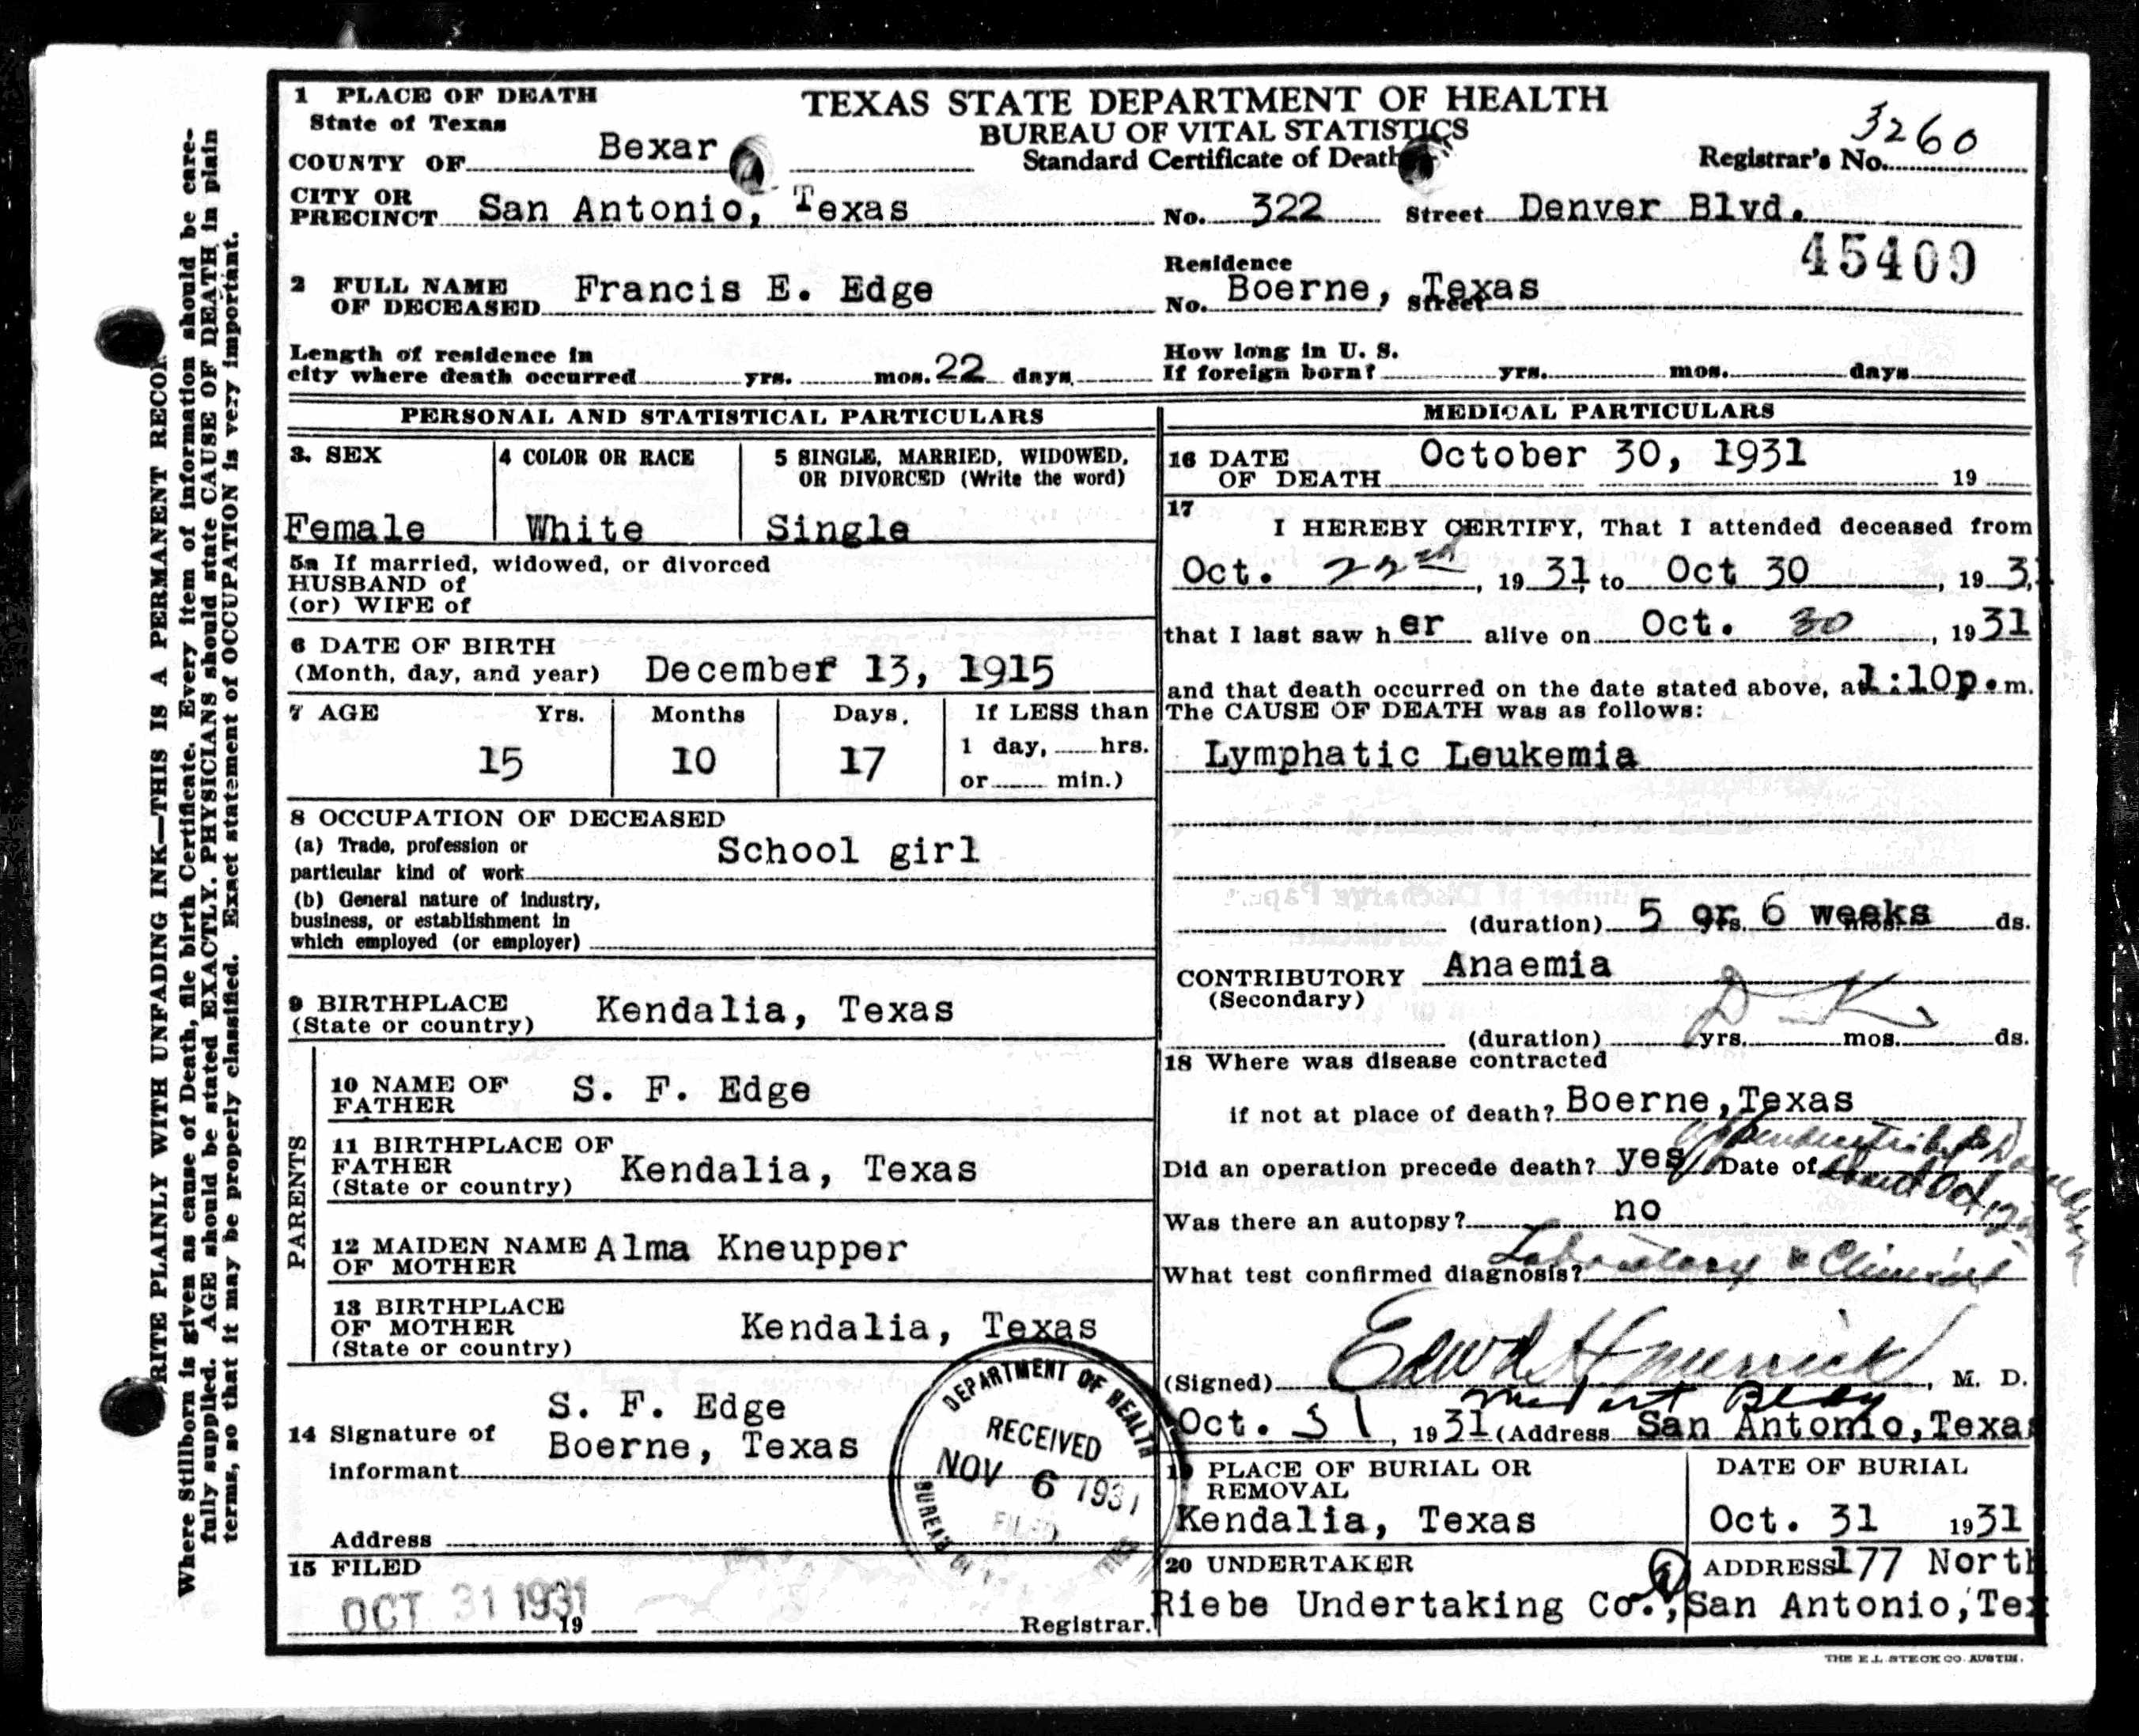 1 PLACE OF DEATH
State of Texas
COUNTY OF Bexar
TEXAS STATE DEPARTMENT OF HEALTH
BUREAU OF VITAL STATISTICS
Standard Certificate of Death
Registrar's No. 3260
CITY OR PRECINCT San Antonio, Texas No. 322 Street Denver Blvd.
45409
2 FULL NAME OF DECEASED Francis E. Edge
Residence
No. Boerne, Texas Street
Length of residence in
city where death occurred yrs. mos. 22 days.
How long in U. S.
If foreign born? yrs. mos. days
PERSONAL AND STATISTICAL PARTICULARS
3. SEX
Female
4 COLOR OR RACE
White
5 SINGLE, MARRIED, WIDOWED,
OR DIVORCED (Write the word)
Single
5a If married, widowed, or divorced
HUSBAND of
(or) WIFE of
6 DATE OF BIRTH
(Month, day, and year) December 13, 1915
7 AGE Yrs. Months Days, If LESS than
15 10 17 1 day, hrs.
or min.)
8 OCCUPATION OF DECEASED
(a) Trade, profession or
particular kind of work School girl
(b) General nature of industry,
business, or establishment in
which employed (or employer)
9 BIRTHPLACE
(State or country) Kendalia, Texas
PARENTS
10 NAME OF
FATHER S. F. Edge
11 BIRTHPLACE OF
FATHER
(State or country) Kendalia, Texas
12 MAIDEN NAME
OF MOTHER Alma Kneupper
13 BIRTHPLACE
OF MOTHER
(State or country) Kendalia, Texas
14 Signature of
informant S. F. Edge
Boerne, Texas
Address
15 FILED
OCT 31 1931
19 Registrar.
DEPARTMENT OF HEALTH
RECEIVED
NOV 6 1931
FILED
BUREAU
MEDICAL PARTICULARS
16 DATE
OF DEATH October 30, 1931 19
17
I HEREBY CERTIFY, That I attended deceased from
Oct. 22nd, 19 31, to Oct 30, 19 31
that I last saw her alive on Oct. 30, 19 31
and that death occurred on the date stated above, at 1:10p.m.
The CAUSE OF DEATH was as follows:
Lymphatic Leukemia
(duration) 5 or 6 weeks yrs. mos. ds.
CONTRIBUTORY Anaemia
(Secondary)
D K
(duration) yrs. mos. ds.
18 Where was disease contracted
if not at place of death? Boerne, Texas
Did an operation precede death? yes Date of about Oct 12
Was there an autopsy? no
What test confirmed diagnosis? Laboratory & Clinical
(Signed) Edwd H Merrick, M. D.
Med Art Bldg
Oct. 31, 19 31 (Address San Antonio, Texas
19 PLACE OF BURIAL OR
REMOVAL
Kendalia, Texas
DATE OF BURIAL
Oct. 31 1931
20 UNDERTAKER
Riebe Undertaking Co.,
ADDRESS 177 North
San Antonio, Tex
THE E.L. STECK CO. AUSTIN.
WRITE PLAINLY WITH UNFADING INK—THIS IS A PERMANENT RECOR
Where Stillborn is given as cause of Death, file birth Certificate. Every item of information should be care-
fully supplied. AGE should be stated EXACTLY. PHYSICIANS should state CAUSE OF DEATH in plain
terms, so that it may be properly classified. Exact statement of OCCUPATION is very important.